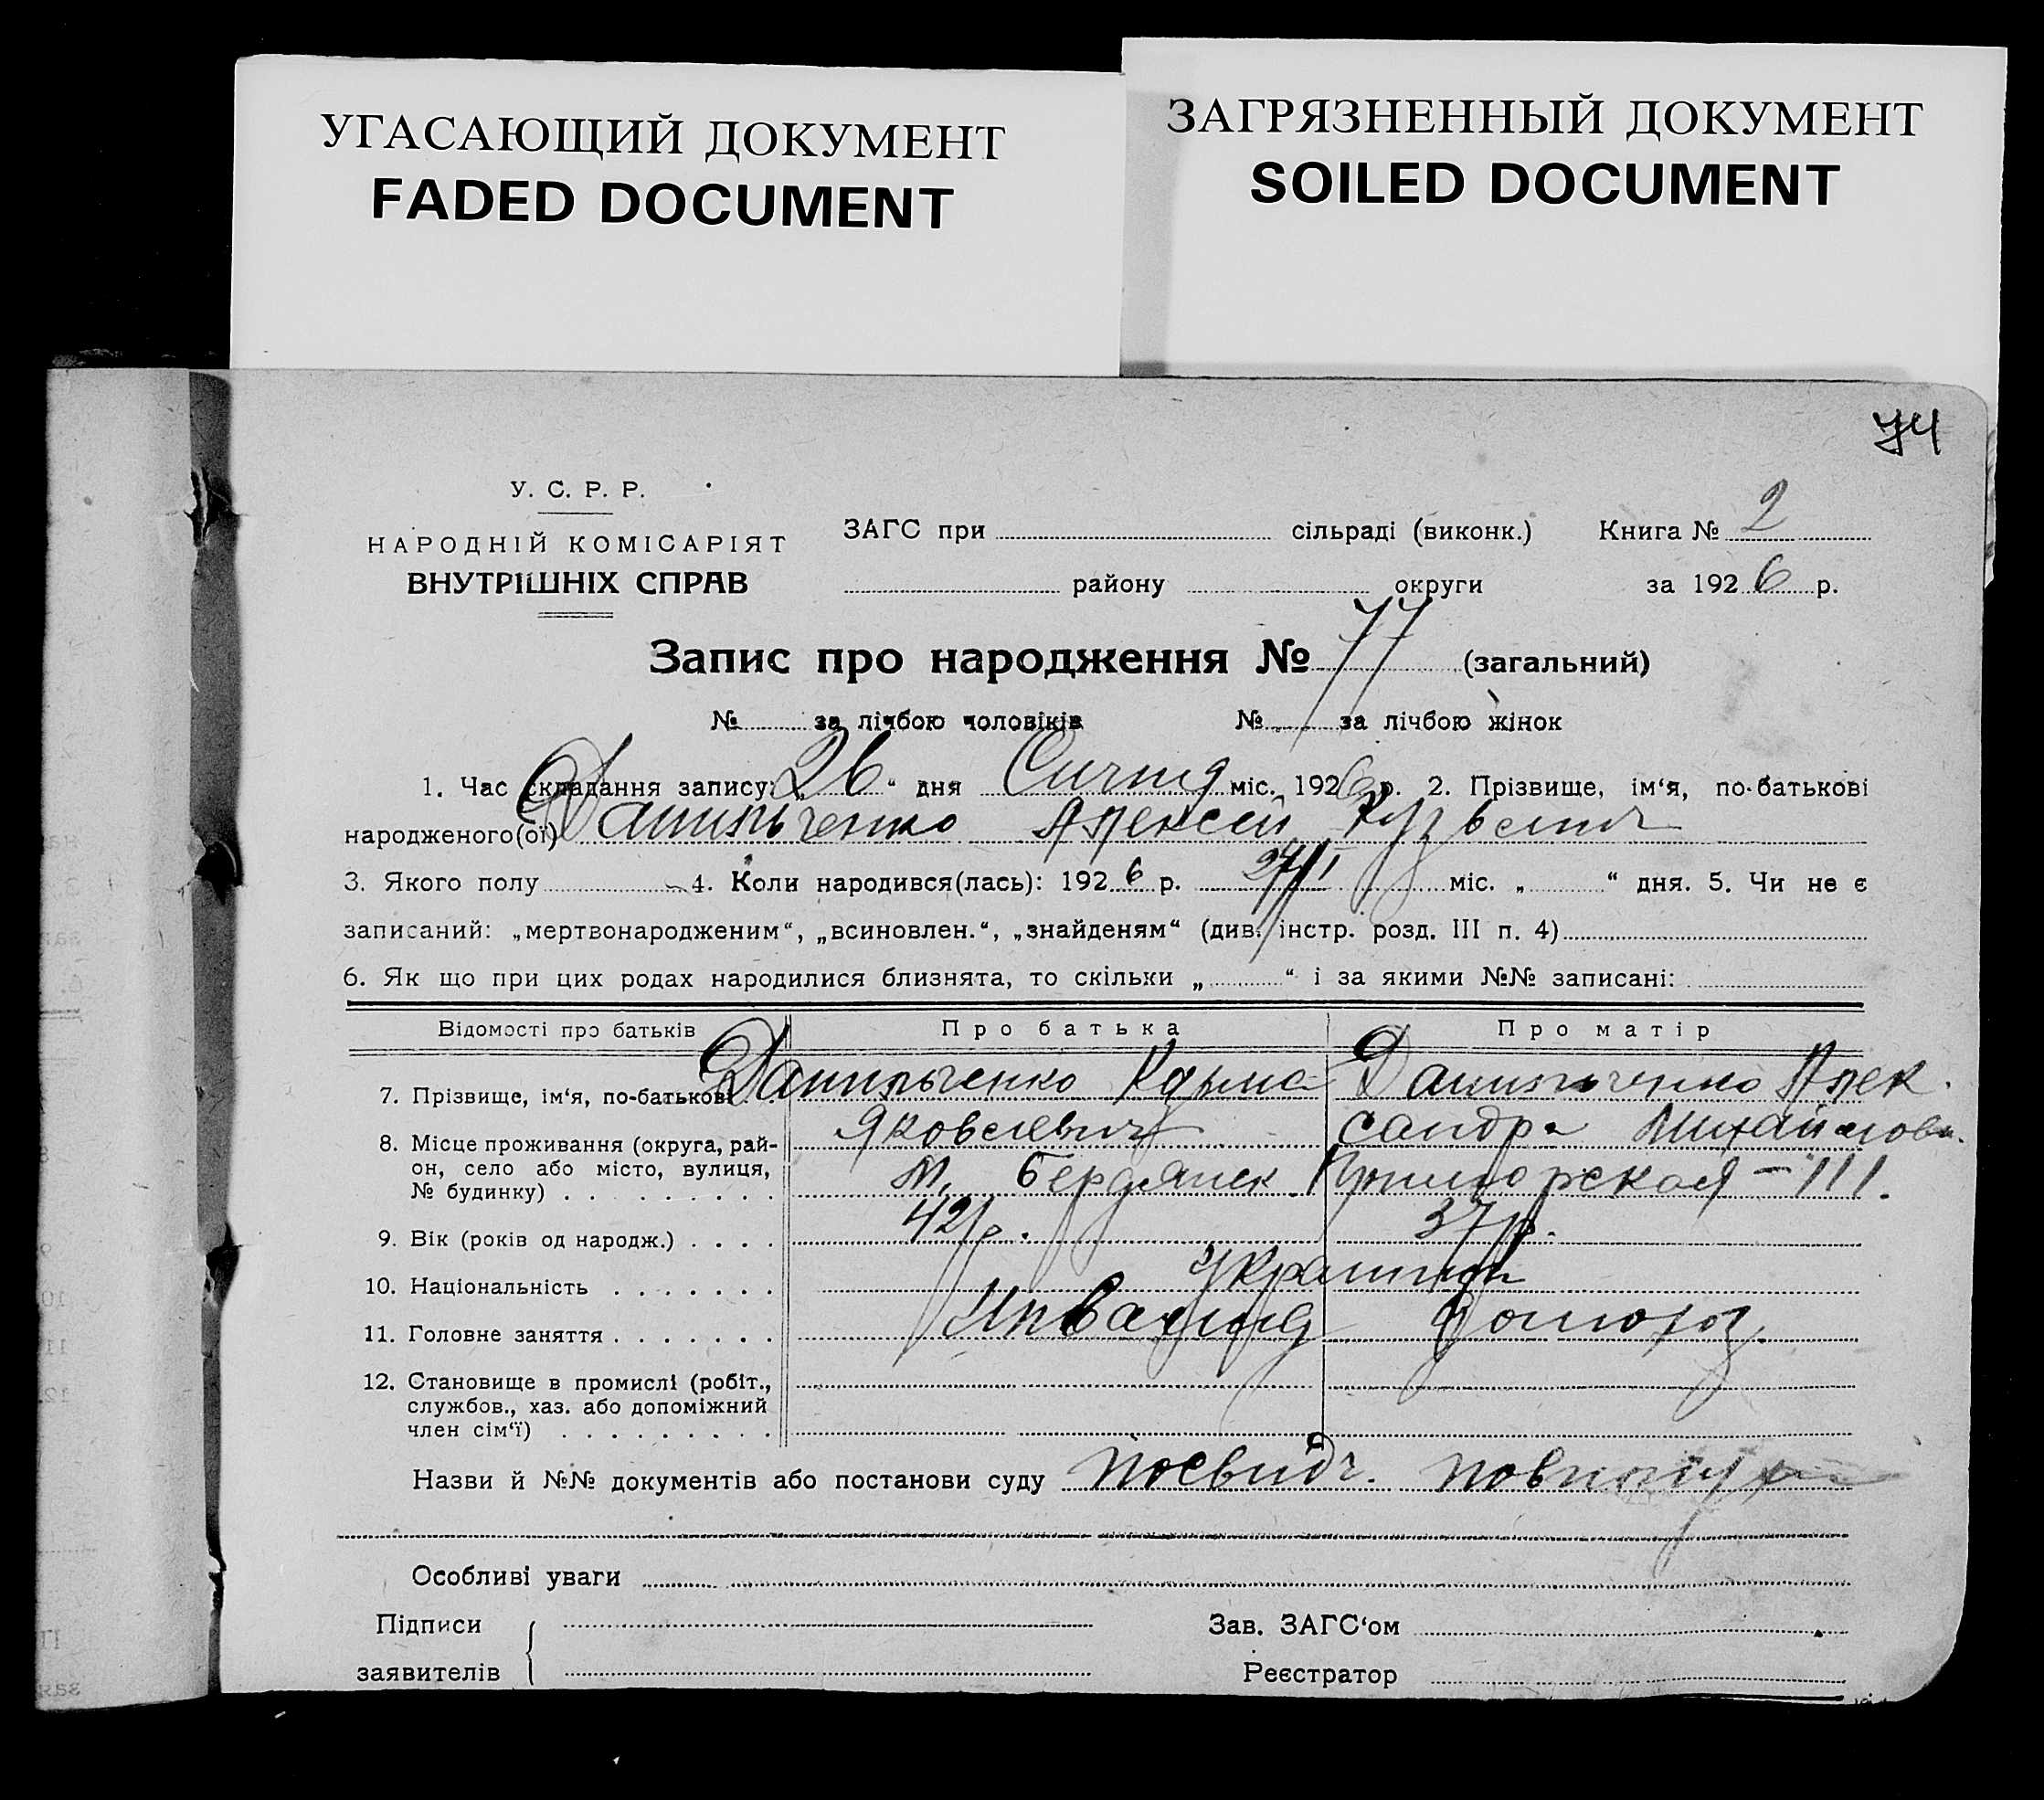 УГАСАЮЩИЙ ДОКУМЕНТ
FADED DOCUMENT
ЗАГРЯЗНЕННЫЙ ДОКУМЕНТ
SOILED DOCUMENT
74
У. С. Р. Р.
НАРОДНІЙ КОМІСАРІЯТ
ВНУТРІШНІХ СПРАВ
ЗАГС при сільраді (виконк.) Книга № 2
району округи за 1926 р.
Запис про народження № 77 (загальний)
№ за лічбою чоловіків № за лічбою жінок
1. Час складання запису: „26“ дня Січня міс. 1926 р. 2. Прізвище, ім‘я, по-батькові
народженого(ої) Данильченко Алексей Кузьмич
3. Якого полу 4. Коли народився(лась): 1926 р. 24/I міс. „ “ дня. 5. Чи не є
записаний: „мертвонародженим“, „всиновлен.“, „знайденям“ (див. інстр. розд. III п. 4)
6. Як що при цих родах народилися близнята, то скільки „ “ і за якими №№ записані:
Відомості про батьків Про батька Про матір
7. Прізвище, ім‘я, по-батькові Данильченко Кузьма Данильченко Алек
Яковлевич сандра Михайловн.
8. Місце проживання (округа, рай-
он, село або місто, вулиця,
№ будинку) м. Бердянск Приморская – 111.
9. Вік (років од народж.) 42 р. 37 р.
10. Національність Украинци
11. Головне заняття Инвалид домохоз.
12. Становище в промислі (робіт.,
службов., хаз. або допоміжний
член сім‘ї)
Назви й №№ документів або постанови суду Посвидч.
Особливі уваги
Підписи Зав. ЗАГС‘ом
заявителів Реєстратор